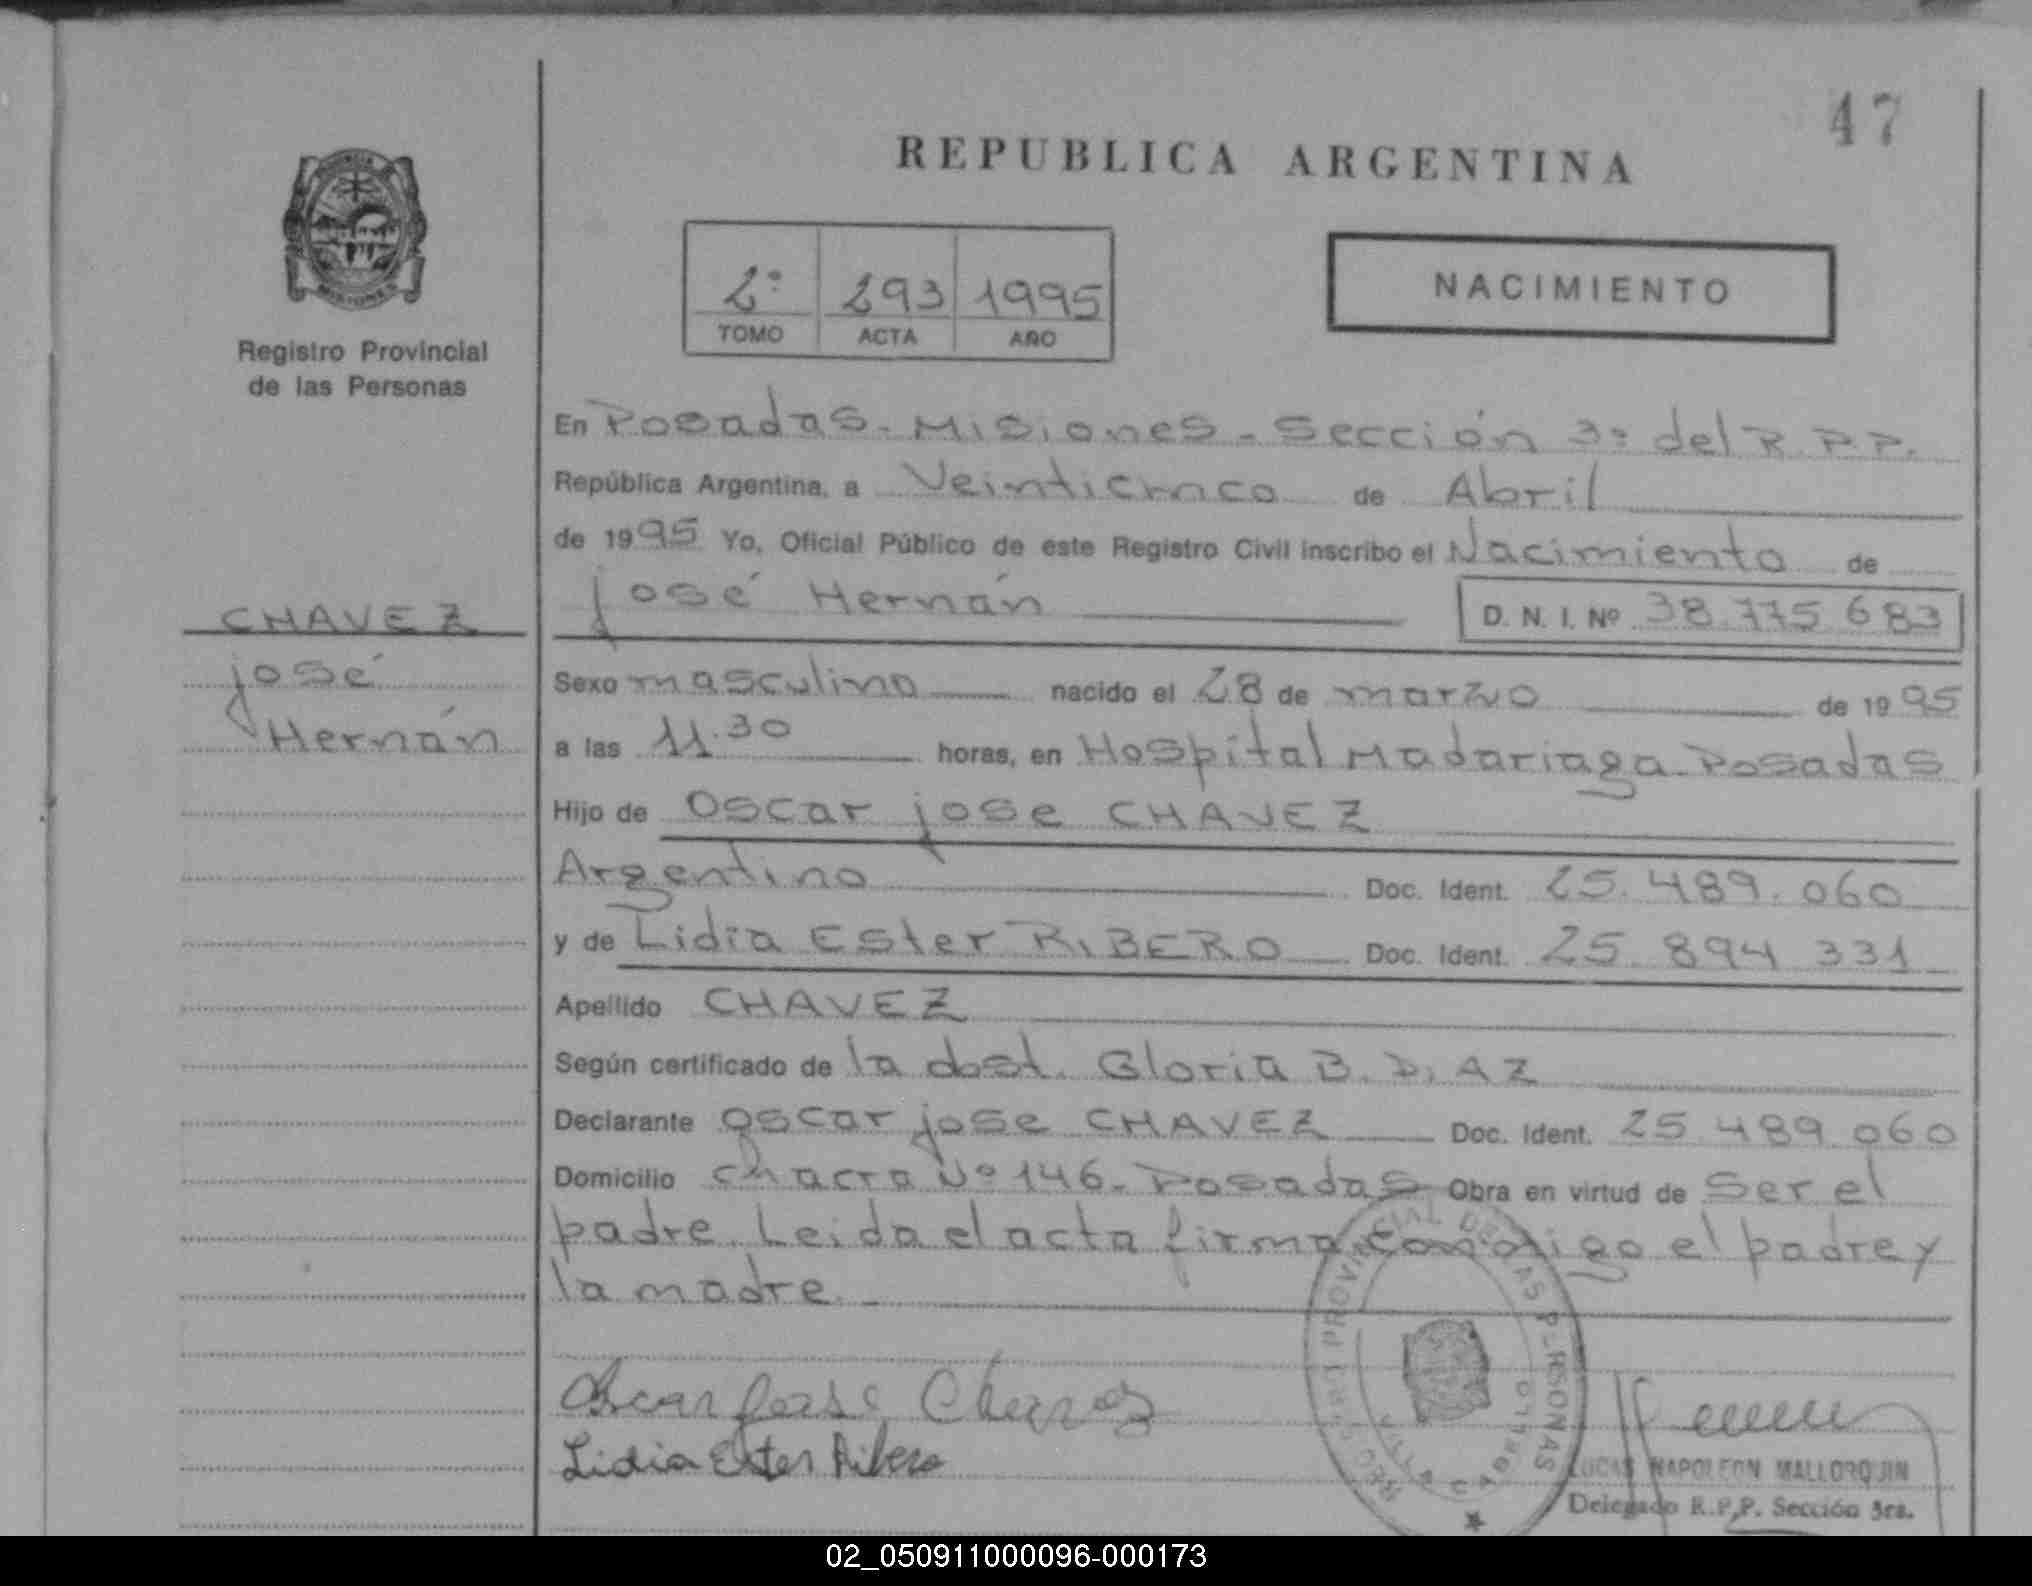 47
REPUBLICA ARGENTINA
MISIONES
Registro Provincial
de las Personas
2º 293 1995
TOMO ACTA AÑO
NACIMIENTO
En Posadas - Misiones - Sección 3º del R.P.P.
República Argentina, a Veinticinco de Abril
de 1995 Yo, Oficial Público de este Registro Civil inscribo el Nacimiento de
José Hernán D. N. I. Nº 38.775.683
CHAVEZ
José
Hernán
Sexo masculino nacido el 28 de marzo de 1995
a las 11.30 horas, en Hospital Madariaga - Posadas
Hijo de Oscar jose CHAVEZ
Argentino Doc. Ident. 25.489.060
y de Lidia Ester RIBERO Doc. Ident. 25.894.331
Apellido CHAVEZ
Según certificado de la obst. Gloria B. DiAZ
Declarante Oscar jose CHAVEZ Doc. Ident. 25.489.060
Domicilio Chacra Nº 146 - Posadas Obra en virtud de Ser el
padre. Leida el acta firma conmigo el padre y
la madre.
Oscar Jose Chavez
Lidia Ester Ribero
REGISTRO PROVINCIAL DE LAS PERSONAS
VILLA CABELLO
LUCAS NAPOLEON MALLORQUIN
Delegado R.P.P. Sección 3ra.
02_050911000096-000173